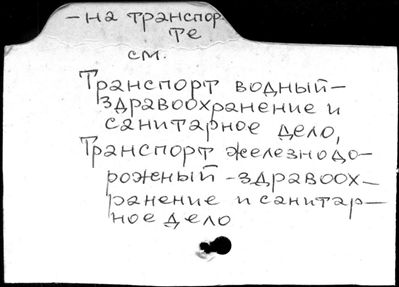 -на транспор-
те
см.
Транспорт водный-
здравоохранение и
санитарное дело,
Транспорт железнодо-
рожный-здравоох-
ранение и санитар-
ное дело